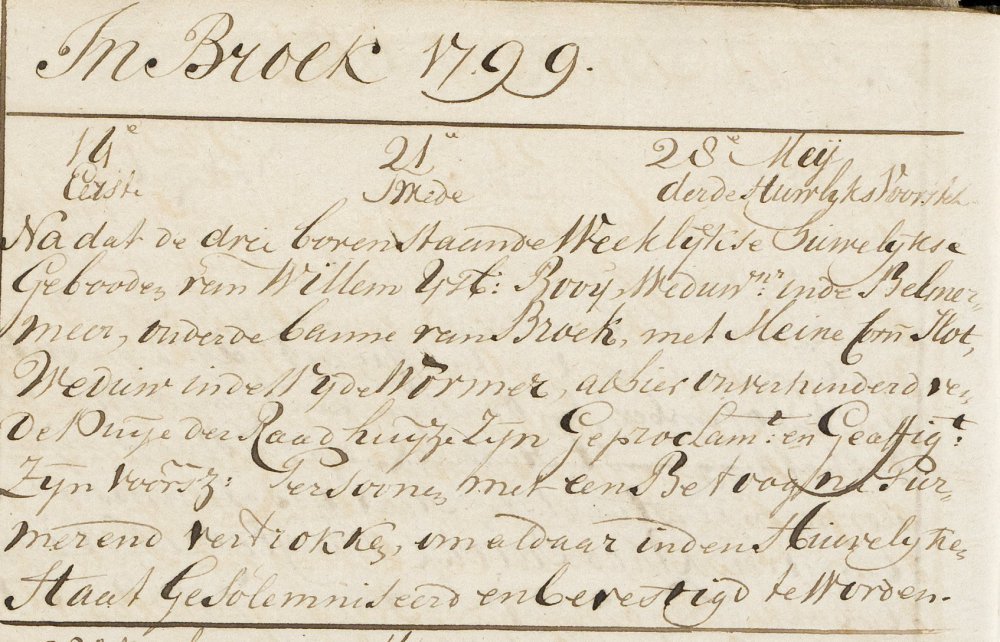 In Broek 1799.
14e 21e 28e Meij
Eerste Twede derde Huwlyks Voorstel
Nadat de drie bovenstaande Weeklykse Huwelykse
Gebooden van Willem Ysb: Rooy, Weduwnr: inde Belmer=
meer, onderde banne van Broek, met Meine Corn Slot,
Weduw inde Wyde Wormer, alhier onverhinderd
De Puije der Raadhuyze Zyn Geproclamt: en Geaffigt:
Zyn voorsz: Persoonen, met een Betoog na Pur=
merend vertrokken, om aldaar inden Huwelyken
Staat GeSolemniseerd en bevestigd te Worden.